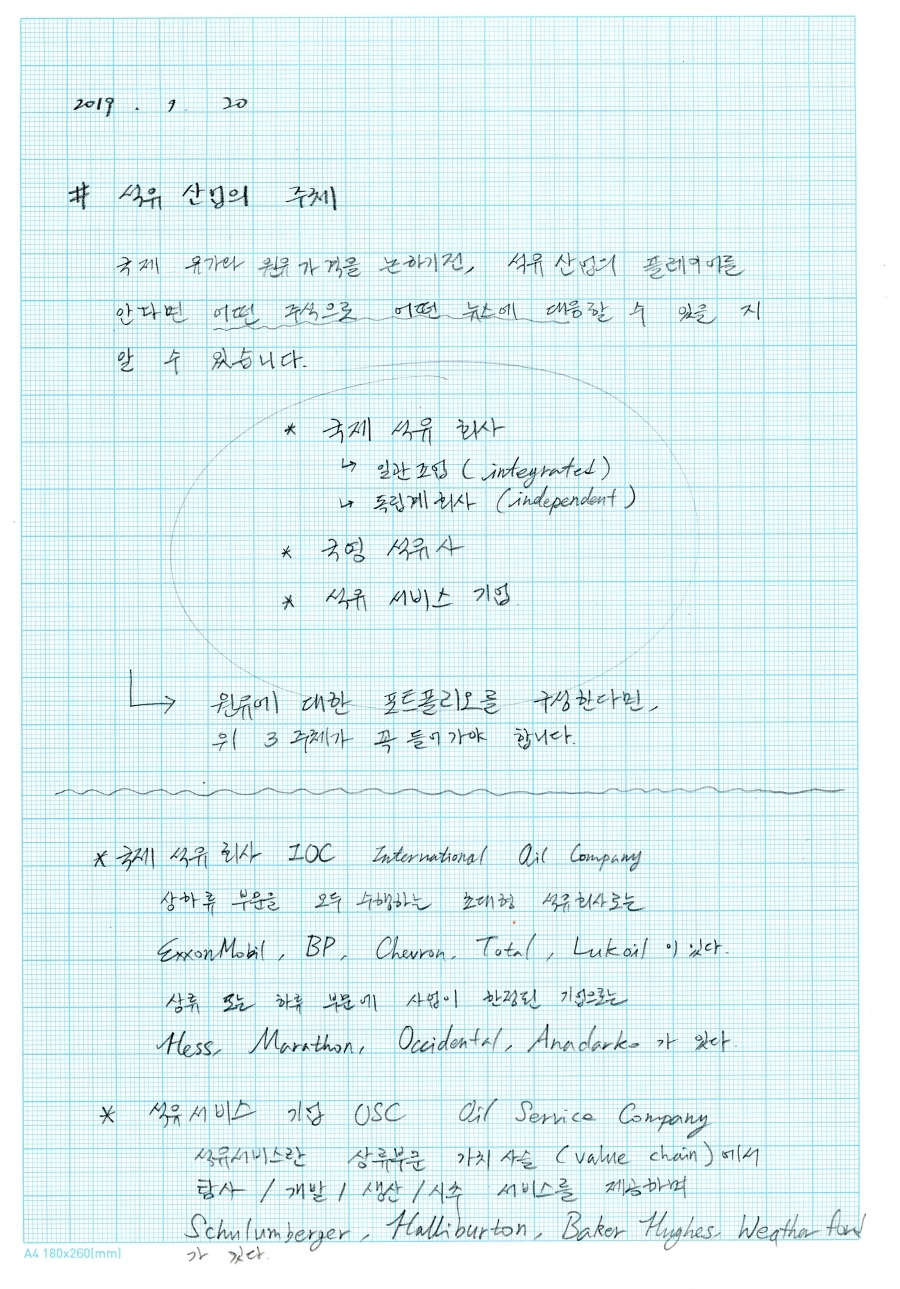 2019 . 9 . 20
# 석유 산업의 주체
국제 유가와 원유가격을 논하기전, 석유산업의 플레이어를
안다면 어떤 주식으로 어떤 뉴스에 대응할 수 있을 지
알 수 있습니다.
* 국제 석유 회사
↳ 일관조업 (integrated)
↳ 독립계회사 (independent)
* 국영 석유사
* 석유 서비스 기업
↳ 원유에 대한 포트폴리오를 구성한다면,
위 3 주체가 꼭 들어가야 합니다.
* 국제 석유 회사 IOC International Oil Company
상하류 부문을 모두 수행하는 초대형 석유회사로는
ExxonMobil, BP, Chevron, Total, Lukoil 이 있다.
상류 또는 하류 부문에 사업이 한정된 기업으로는
Hess, Marathon, Occidental, Anadarko 가 있다.
* 석유서비스 기업 OSC Oil Service Company
석유서비스란 상류부문 가치 사슬 (value chain)에서
탐사 / 개발 / 생산 / 시추 서비스를 제공하며
Schulumberger, Halliburton, Baker Hughes, Weatherford
가 있다.
A4 180x260(mm)